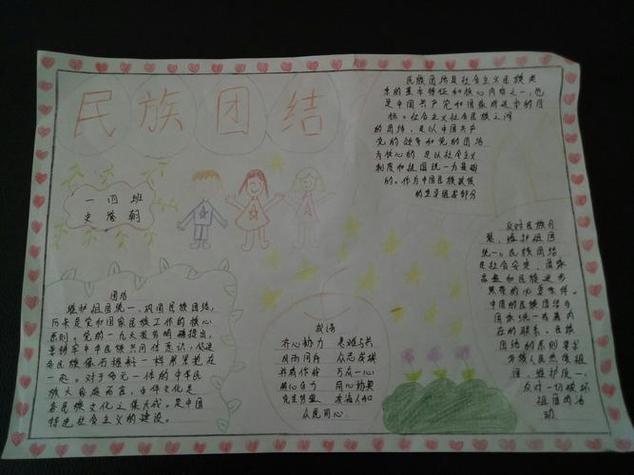 民族团结
民族团结是社会主义民族关
系的基本特征和核心内容之一,也
是中国共产党和国家
社会主义社会民族之间
的团结,是以中国共产
党的领导和党的团结
为核心的,是以社会主义
制度和祖国统一为基础
的。作为中国民族政策
一四班
反对民族分
裂,维护祖国
统一。民族团结
是社会安定、国家
昌盛和民族进步
繁荣的必要条件。
中国的民族团结与
国家统一有着内
在的联系。民族
团结的原则要求
各族人民
维护统一,
反对一切破坏
祖国的活
动
团结
维护祖国统一,巩固民族团结,
历来是党和国家民族工作的核心
原则。党的一九大报告明确提出,
民族共同体意识,促进
各民族像石榴籽一样紧紧抱在
一起。对于多元一体的中华民
族大家庭而言,
各民族文化之集大成,是中国
特色社会主义的建设。
成语
齐心协力 患难与共
风雨同舟 众志成城
万众一心
同心协力
众民同心